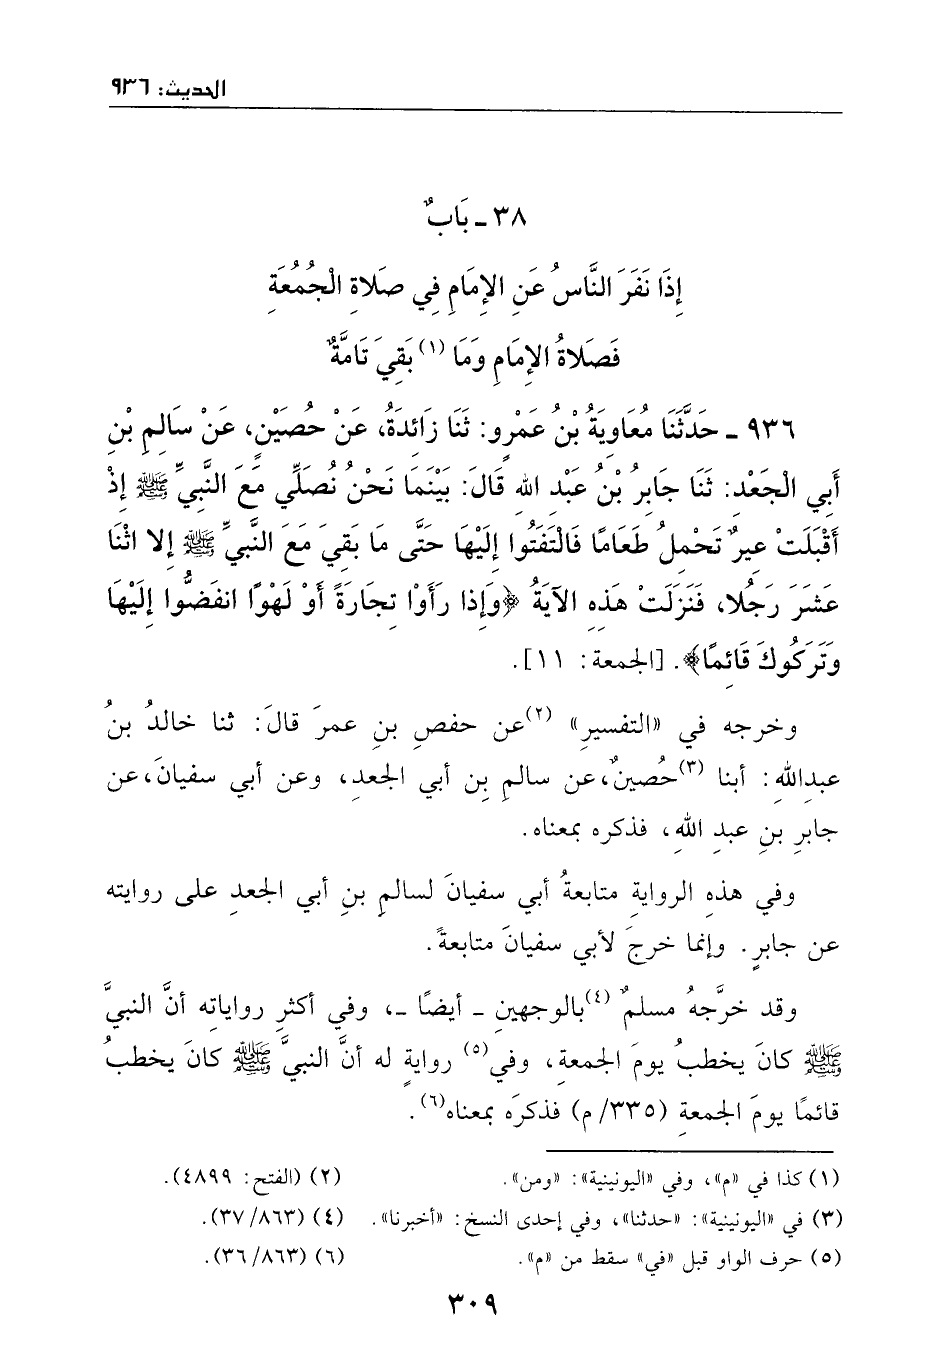 الحديث: ٩٣٦
٣٨ ـ بَابٌ
إِذَا نَفَرَ النَّاسُ عَنِ الإِمَامِ فِي صَلَاةِ الْجُمُعَةِ
فَصَلَاةُ الإِمَامِ وَمَا (١) بَقِيَ تَامَّةٌ
٩٣٦ ـ حَدَّثَنَا مُعَاوِيَةُ بْنُ عَمْرٍو: ثَنَا زَائِدَةُ، عَنْ حُصَيْنٍ، عَنْ سَالِمِ بْنِ
أَبِي الْجَعْدِ: ثَنَا جَابِرُ بْنُ عَبْدِ اللهِ قَالَ: بَيْنَمَا نَحْنُ نُصَلِّي مَعَ النَّبِيِّ ﷺ إِذْ
أَقْبَلَتْ عِيرٌ تَحْمِلُ طَعَامًا فَالْتَفَتُوا إِلَيْهَا حَتَّى مَا بَقِيَ مَعَ النَّبِيِّ ﷺ إِلا اثْنَا
عَشَرَ رَجُلا، فَنَزَلَتْ هَذِهِ الآيَةُ ﴿وَإِذَا رَأَوْا تِجَارَةً أَوْ لَهْوًا انفَضُّوا إِلَيْهَا
وَتَرَكُوكَ قَائِمًا﴾. [الجمعة: ١١].
وخرجه في «التفسيرِ» (٢) عن حفصِ بنِ عمرَ قالَ: ثنا خالدُ بنُ
عبدِاللهِ: أبنا (٣) حُصينٌ، عن سالمِ بنِ أبي الجعدِ، وعن أبي سفيانَ، عن
جابرِ بنِ عبدِ اللهِ، فذكره بمعناه.
وفي هذهِ الروايةِ متابعةُ أبي سفيانَ لسالمِ بنِ أبي الجعدِ على روايته
عن جابرٍ. وإنما خرجَ لأبي سفيانَ متابعةً.
وقد خرَّجهُ مسلمٌ (٤) بالوجهينِ ـ أيضًا ـ، وفي أكثرِ رواياته أنَّ النبيَّ
ﷺ كانَ يخطبُ يومَ الجمعةِ، وفي (٥) روايةٍ له أنَّ النبيَّ ﷺ كانَ يخطبُ
قائمًا يومَ الجمعةِ (٣٣٥/ م) فذكرَه بمعناه (٦).
(١) كذا في «م»، وفي «اليونينية»: «ومن». (٢) (الفتح: ٤٨٩٩).
(٣) في «اليونينية»: «حدثنا»، وفي إحدى النسخ: «أخبرنا». (٤) (٣٧/٨٦٣).
(٥) حرف الواو قبل «في» سقط من «م». (٦) (٣٦/٨٦٣).
٣٠٩